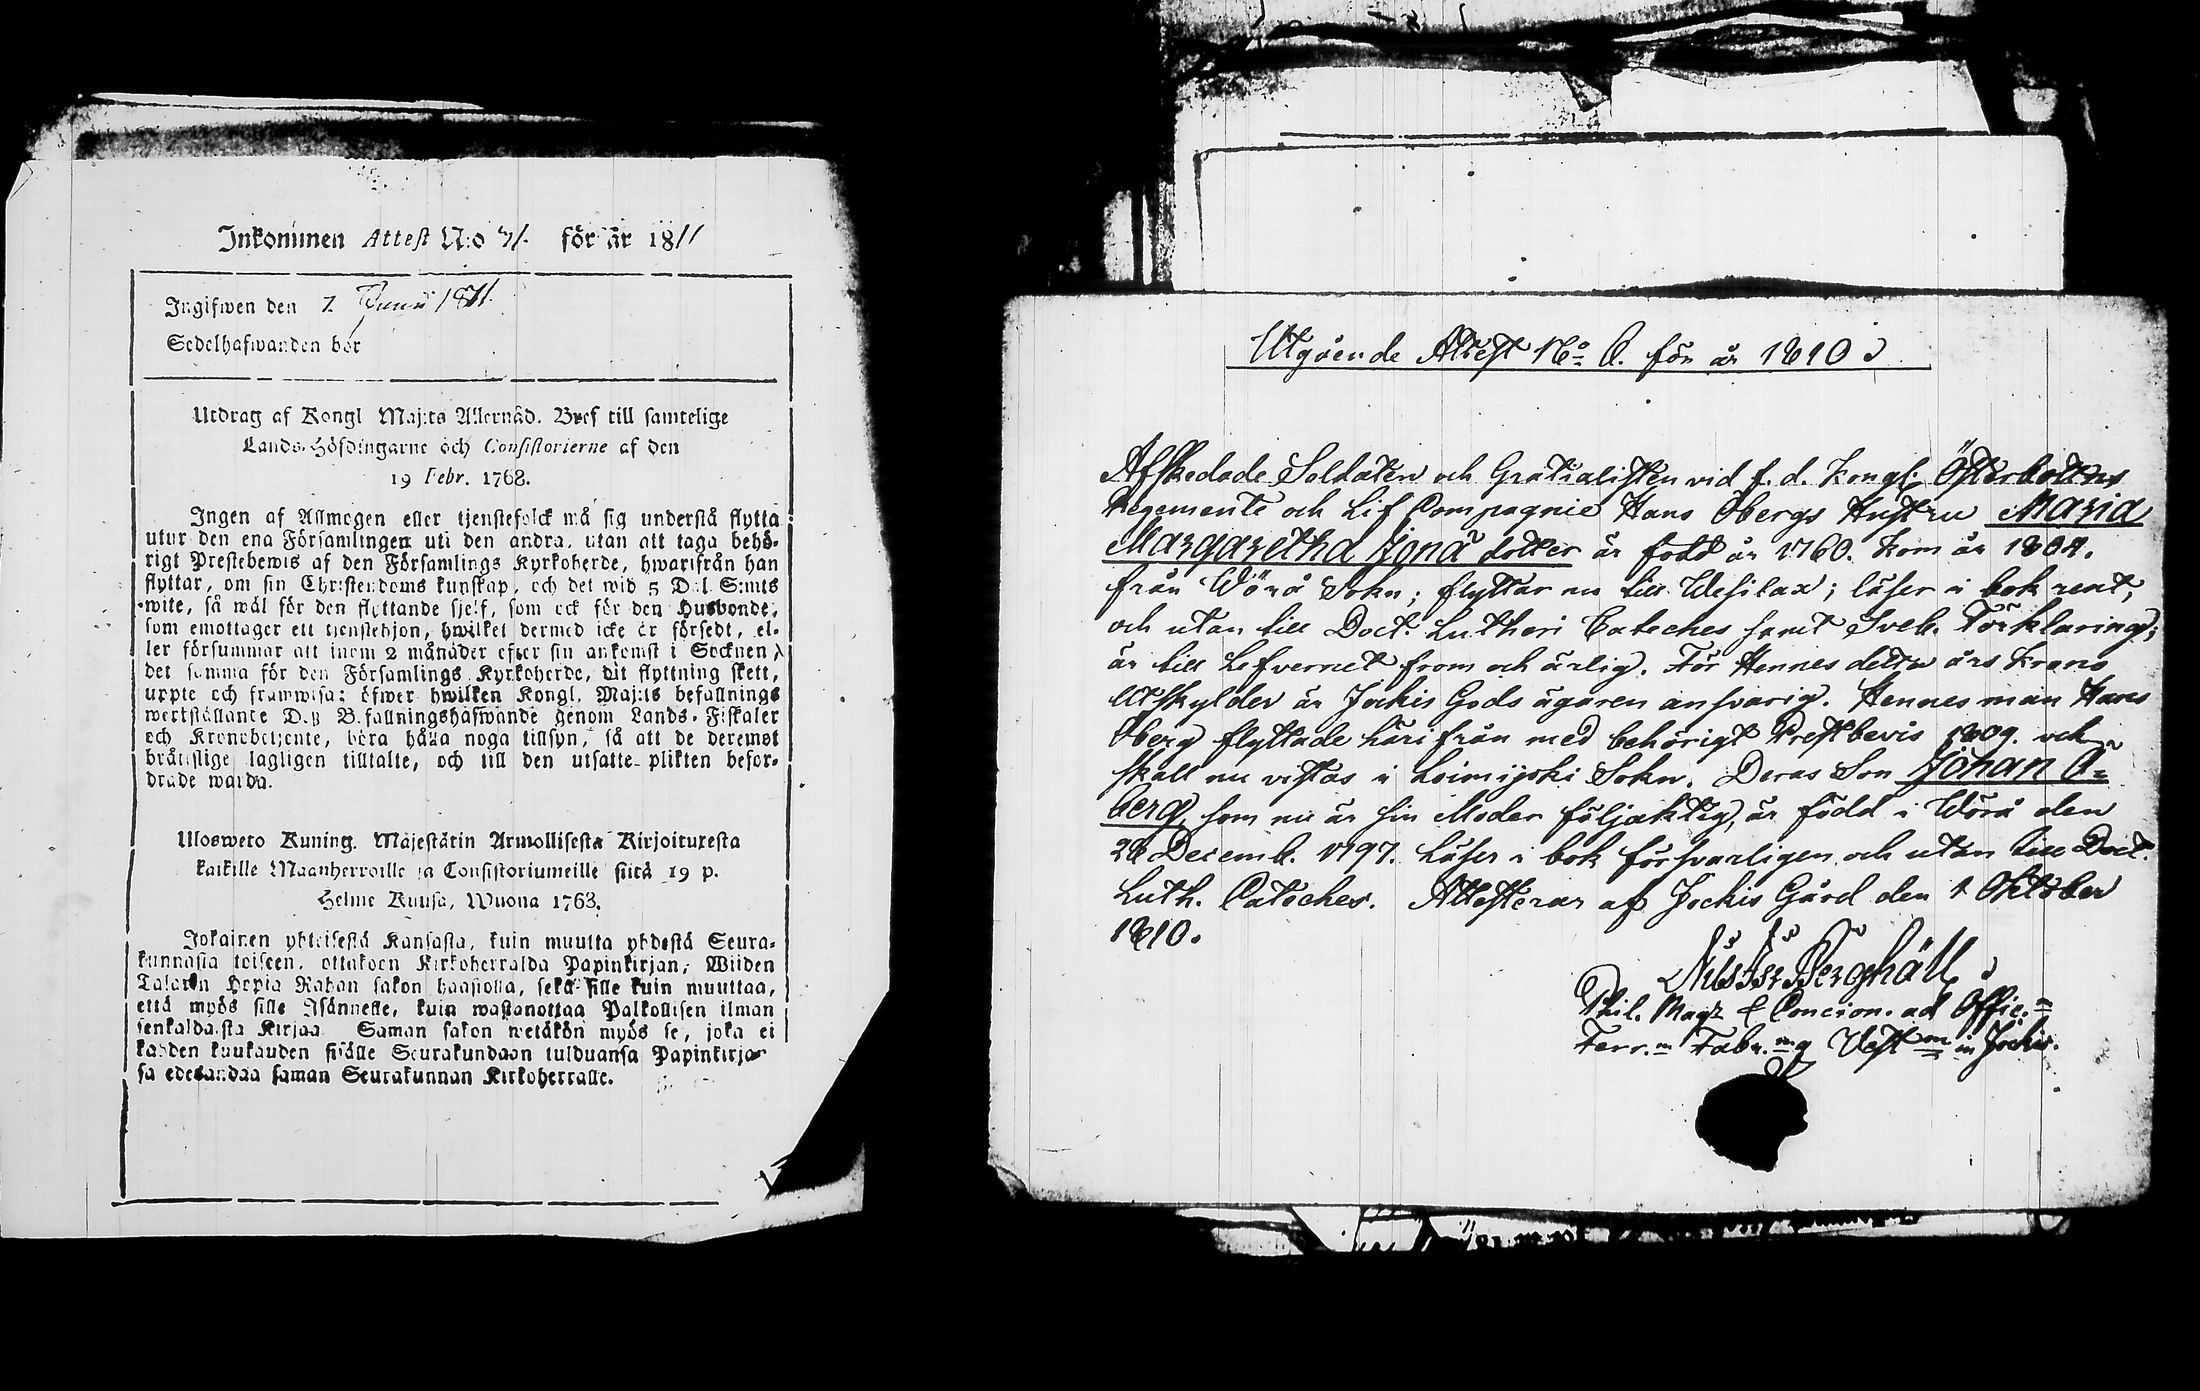 Inkommen Attest N:o för år 1811
Ingifwen den 7 Junii 1811.
Sedelhafwanden bör
Utdrag af Kongl Maj:ts Allernåd. Bref till samtelige
Lands-Höfdingarne och Consistorierne af den
19 Febr. 1768.
Ingen af Allmogen eller tjenstefolck må sig understå flytta
utur den ena Församlingen uti den andra, utan att taga behö-
rigt Prestebewis af den Församlings Kyrkoherde, hwarifrån han
flyttar, om sin Christendoms kunskap, och det wid 5 Dal. S:mts
wite, så wäl för den flyttande sjelf, som ock för den Husbonde,
som emottager ett tjenstehjon, hwilket dermed icke är försedt, el-
ler försummar att inom 2 månader efter sin ankomst i Socknen
det samma för den Församlings Kyrkoherde, dit flyttning skett,
uppte och framwisa; öfwer hwilken Kongl. Maj:ts befallnings
werkställande Deß Befallningshafwande genom Lands-Fiskaler
och Kronobetjente, böra hålla noga tillsyn, så att de deremot
brättslige lagligen tilltalte, och till den utsatte plikten befor-
drade warda.
Ulosweto Kuning. Majestätin Armollisesta Kirjoituxesta
kaikille Maanherroille ja Consistoriumeille siitä 19 p.
Helme Kuusa, Wuona 1768.
Jokainen yhteisestä Kansasta, kuin muutta yhdestä Seura-
kunnasta toiseen, ottakoen Kirkoherralda Papinkirjan; Wiiden
Talarin Hopia Rahan sakon haastolla, sekä sille kuin muuttaa,
että myös sille Isännelle, kuin wastanottaa Palkollisen ilman
senkaldaista Kirjaa Saman sakon wetäkön myös se, joka ei
kahden kuukauden sisälle Seurakundaan tulduansa Papinkirja-
sa edesandaa saman Seurakunnan Kirkoherralle.
Utgående Attest No. 6. för år 1810
Afskedade Soldaten och Gratialisten vid f. d. Kongl. Österbottns
Regemente och Lif Compagnie Hans Öbergs Hustru Maria
Margaretha Jona dotter är född år 1760. Kom år 1804.
från Wörå Sokn; flyttar nu till Wesilax; läser i bok rent,
och utan till Doct. Lutheri Cateches samt Sveb. Förklaring;
är till Lefvernet from och ärlig. För Hennes detta års Krono
Utskylder är Jockis Gods ägaren ansvarig. Hennes man Hans
Öberg flyttade härifrån med behörigt Prestbevis 1809. och
skall nu vistas i Loimijoki Sokn. Deras Son Johan Ö-
berg, som nu är sin Moder följaktig, är född i Wörå den
26 Decemb. 1797. Läser i bok försvarligen och utan till Doct.
Luth. Cateches. Attesterar af Jockis Gård den 1 Oktober
1810.
Nils Berghäll
Phil. Mag. & Concion. ad Offic.
Ferr. Fabr. Vest in Jockis.